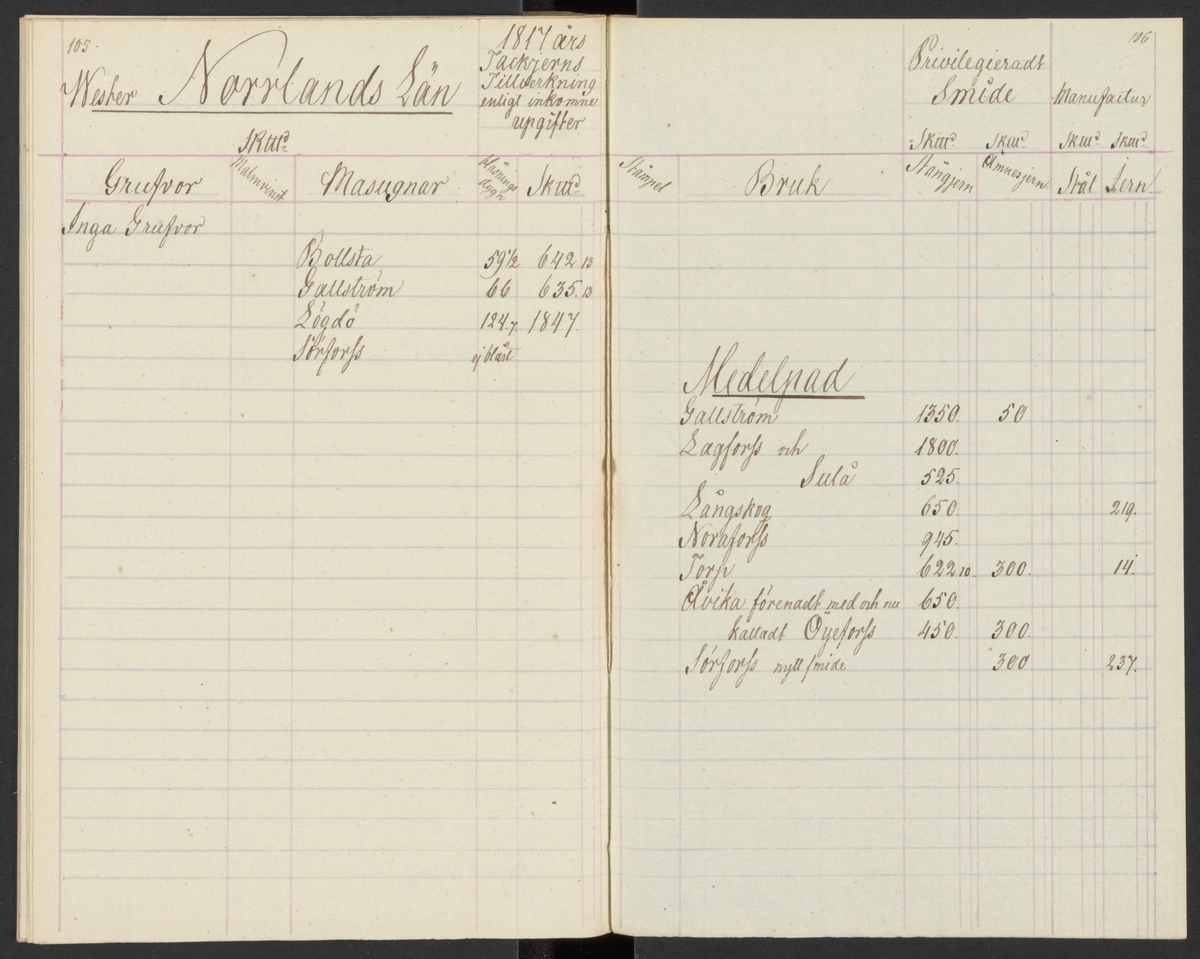 105.
Wester Norrlands Län
1817 års
Tackjerns
Tillverkning
enligt inkomne
upgifter
Sku͞d
Grufvor Malmvinst Masugnar Blåsnings dygn Sku͞d
Inga Grufvor
Bollsta 59½ 642 13
Gallström 66 635. 13
Lögdö 124.7. 1847.
Sörforss ej blåst
106
Privilegieradt
Smide Manufactur
Sku͞d Sku͞d Sku͞d Sku͞d
Stämpel Bruk Stångjern Ämnesjern Stål Jern
Medelpad
Gallström 1350. 50
Lagforss och 1800.
Sulå 525.
Långskog 650. 219.
Noraforss 945.
Torp 622 10 300. 14.
Åvika förenadt med och nu 650.
kalladt Öyeforss 450. 300.
Sörforss nytt smide 300 237.